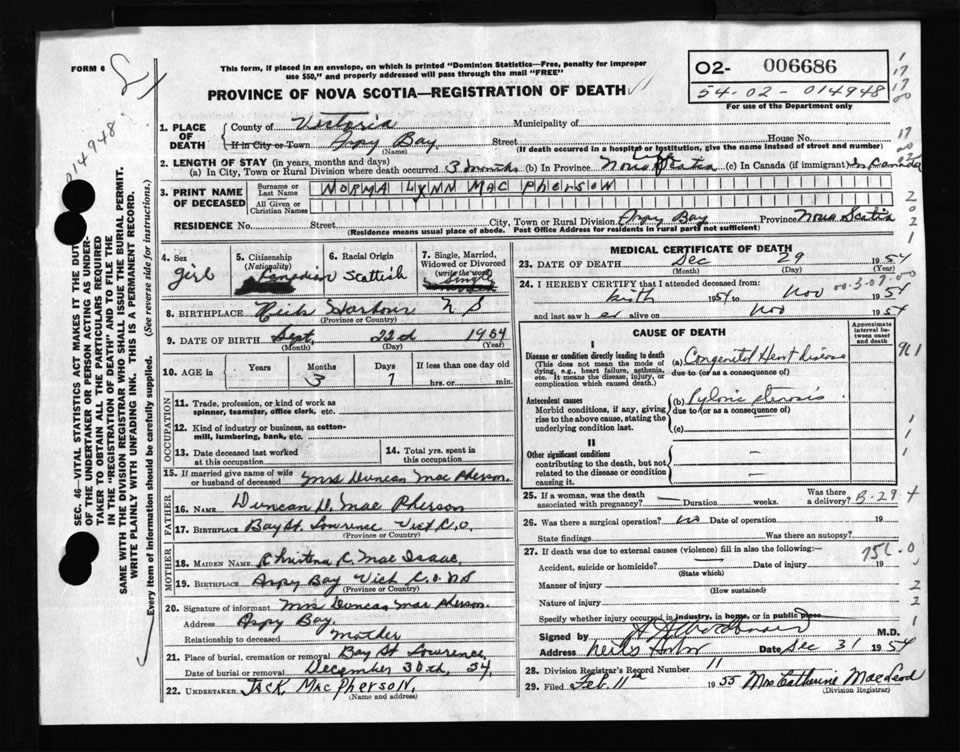 FORM 6
This form, if placed in an envelope, on which is printed "Dominion Statistics—Free, penalty for improper
use $50," and properly addressed will pass through the mail "FREE"
PROVINCE OF NOVA SCOTIA—REGISTRATION OF DEATH
O2- 006686
54-02-014948
For use of the Department only
014948
1. PLACE OF DEATH
County of Victoria Municipality of
If in City or Town Aspy Bay Street House No.
(Name) (If death occurred in a hospital or institution, give the name instead of street and number)
2. LENGTH OF STAY (in years, months and days)
(a) In City, Town or Rural Division where death occurred 3 months (b) In Province Nova Scotia (c) In Canada (if immigrant) in Canada
3. PRINT NAME OF DECEASED
Surname or Last Name NORMA LYNN MAC PHERSON
All Given or Christian Names
RESIDENCE No. Street City, Town or Rural Division Aspy Bay Province Nova Scotia
(Residence means usual place of abode. Post Office Address for residents in rural parts not sufficient)
4. Sex girl
5. Citizenship (Nationality) Canadian
6. Racial Origin Scottish
7. Single, Married, Widowed or Divorced (write the word) Single
8. BIRTHPLACE Neils Harbour N S
(Province or Country)
9. DATE OF BIRTH Sept. 22nd 1954
(Month) (Day) (Year)
10. AGE in Years Months 3 Days 7 If less than one day
hrs. or min.
OCCUPATION
11. Trade, profession, or kind of work as
spinner, teamster, office clerk, etc.
12. Kind of industry or business, as cotton-
mill, lumbering, bank, etc.
13. Date deceased last worked
at this occupation
14. Total yrs. spent in
this occupation
15. If married give name of wife
or husband of deceased Mrs Duncan Mac Pherson.
FATHER
16. Name Duncan D. Mac Pherson
17. Birthplace Bay St. Lawrence Vict. C.O.
(Province or Country)
MOTHER
18. Maiden Name Christina C. Mac Isaac
19. Birthplace Aspy Bay Vict C.O. NS
(Province or Country)
20. Signature of informant Mrs Duncan Mac Pherson.
Address Aspy Bay.
Relationship to deceased Mother
21. Place of burial, cremation or removal Bay St Lawrence,
Date of burial or removal December 30th, 54
22. UNDERTAKER JACK MACPHERSON.
(Name and address)
MEDICAL CERTIFICATE OF DEATH
23. DATE OF DEATH Dec 29 1954
(Month) (Day) (Year)
24. I HEREBY CERTIFY that I attended deceased from:
birth 1954 to Nov 1954
and last saw her alive on Nov 1954
CAUSE OF DEATH
Approximate interval between onset and death
I
Disease or condition directly leading to death
(This does not mean the mode of dying, e.g., heart failure, asthenia, etc. It means the disease, injury, or complication which caused death.)
(a) Congenital Heart Disease
due to (or as a consequence of)
Antecedent causes
Morbid conditions, if any, giving rise to the above cause, stating the underlying condition last.
(b) Pyloric stenosis
due to (or as a consequence of)
(c)
II
Other significant conditions
contributing to the death, but not related to the disease or condition causing it.
25. If a woman, was the death
associated with pregnancy? Duration weeks. Was there a delivery?
B-29 4
26. Was there a surgical operation? no Date of operation 19
State findings Was there an autopsy?
27. If death was due to external causes (violence) fill in also the following:—
Accident, suicide or homicide? Date of injury 19
(State which)
Manner of injury
(How sustained)
Nature of injury
Specify whether injury occurred in industry, in home, or in public place
Signed by M.D.
Address Neils Hbr Date Dec 31 1954
28. Division Registrar's Record Number 11
29. Filed Feb. 11th 1955 Mrs Catherine Macleod
(Division Registrar)
SEC. 46—VITAL STATISTICS ACT MAKES IT THE DUTY
OF THE UNDERTAKER OR PERSON ACTING AS UNDER-
TAKER TO OBTAIN ALL THE PARTICULARS REQUIRED
IN THE "REGISTRATION OF DEATH" AND TO FILE THE
SAME WITH THE DIVISION REGISTRAR WHO SHALL ISSUE THE BURIAL PERMIT.
WRITE PLAINLY WITH UNFADING INK. THIS IS A PERMANENT RECORD.
Every item of information should be carefully supplied. (See reverse side for instructions.)